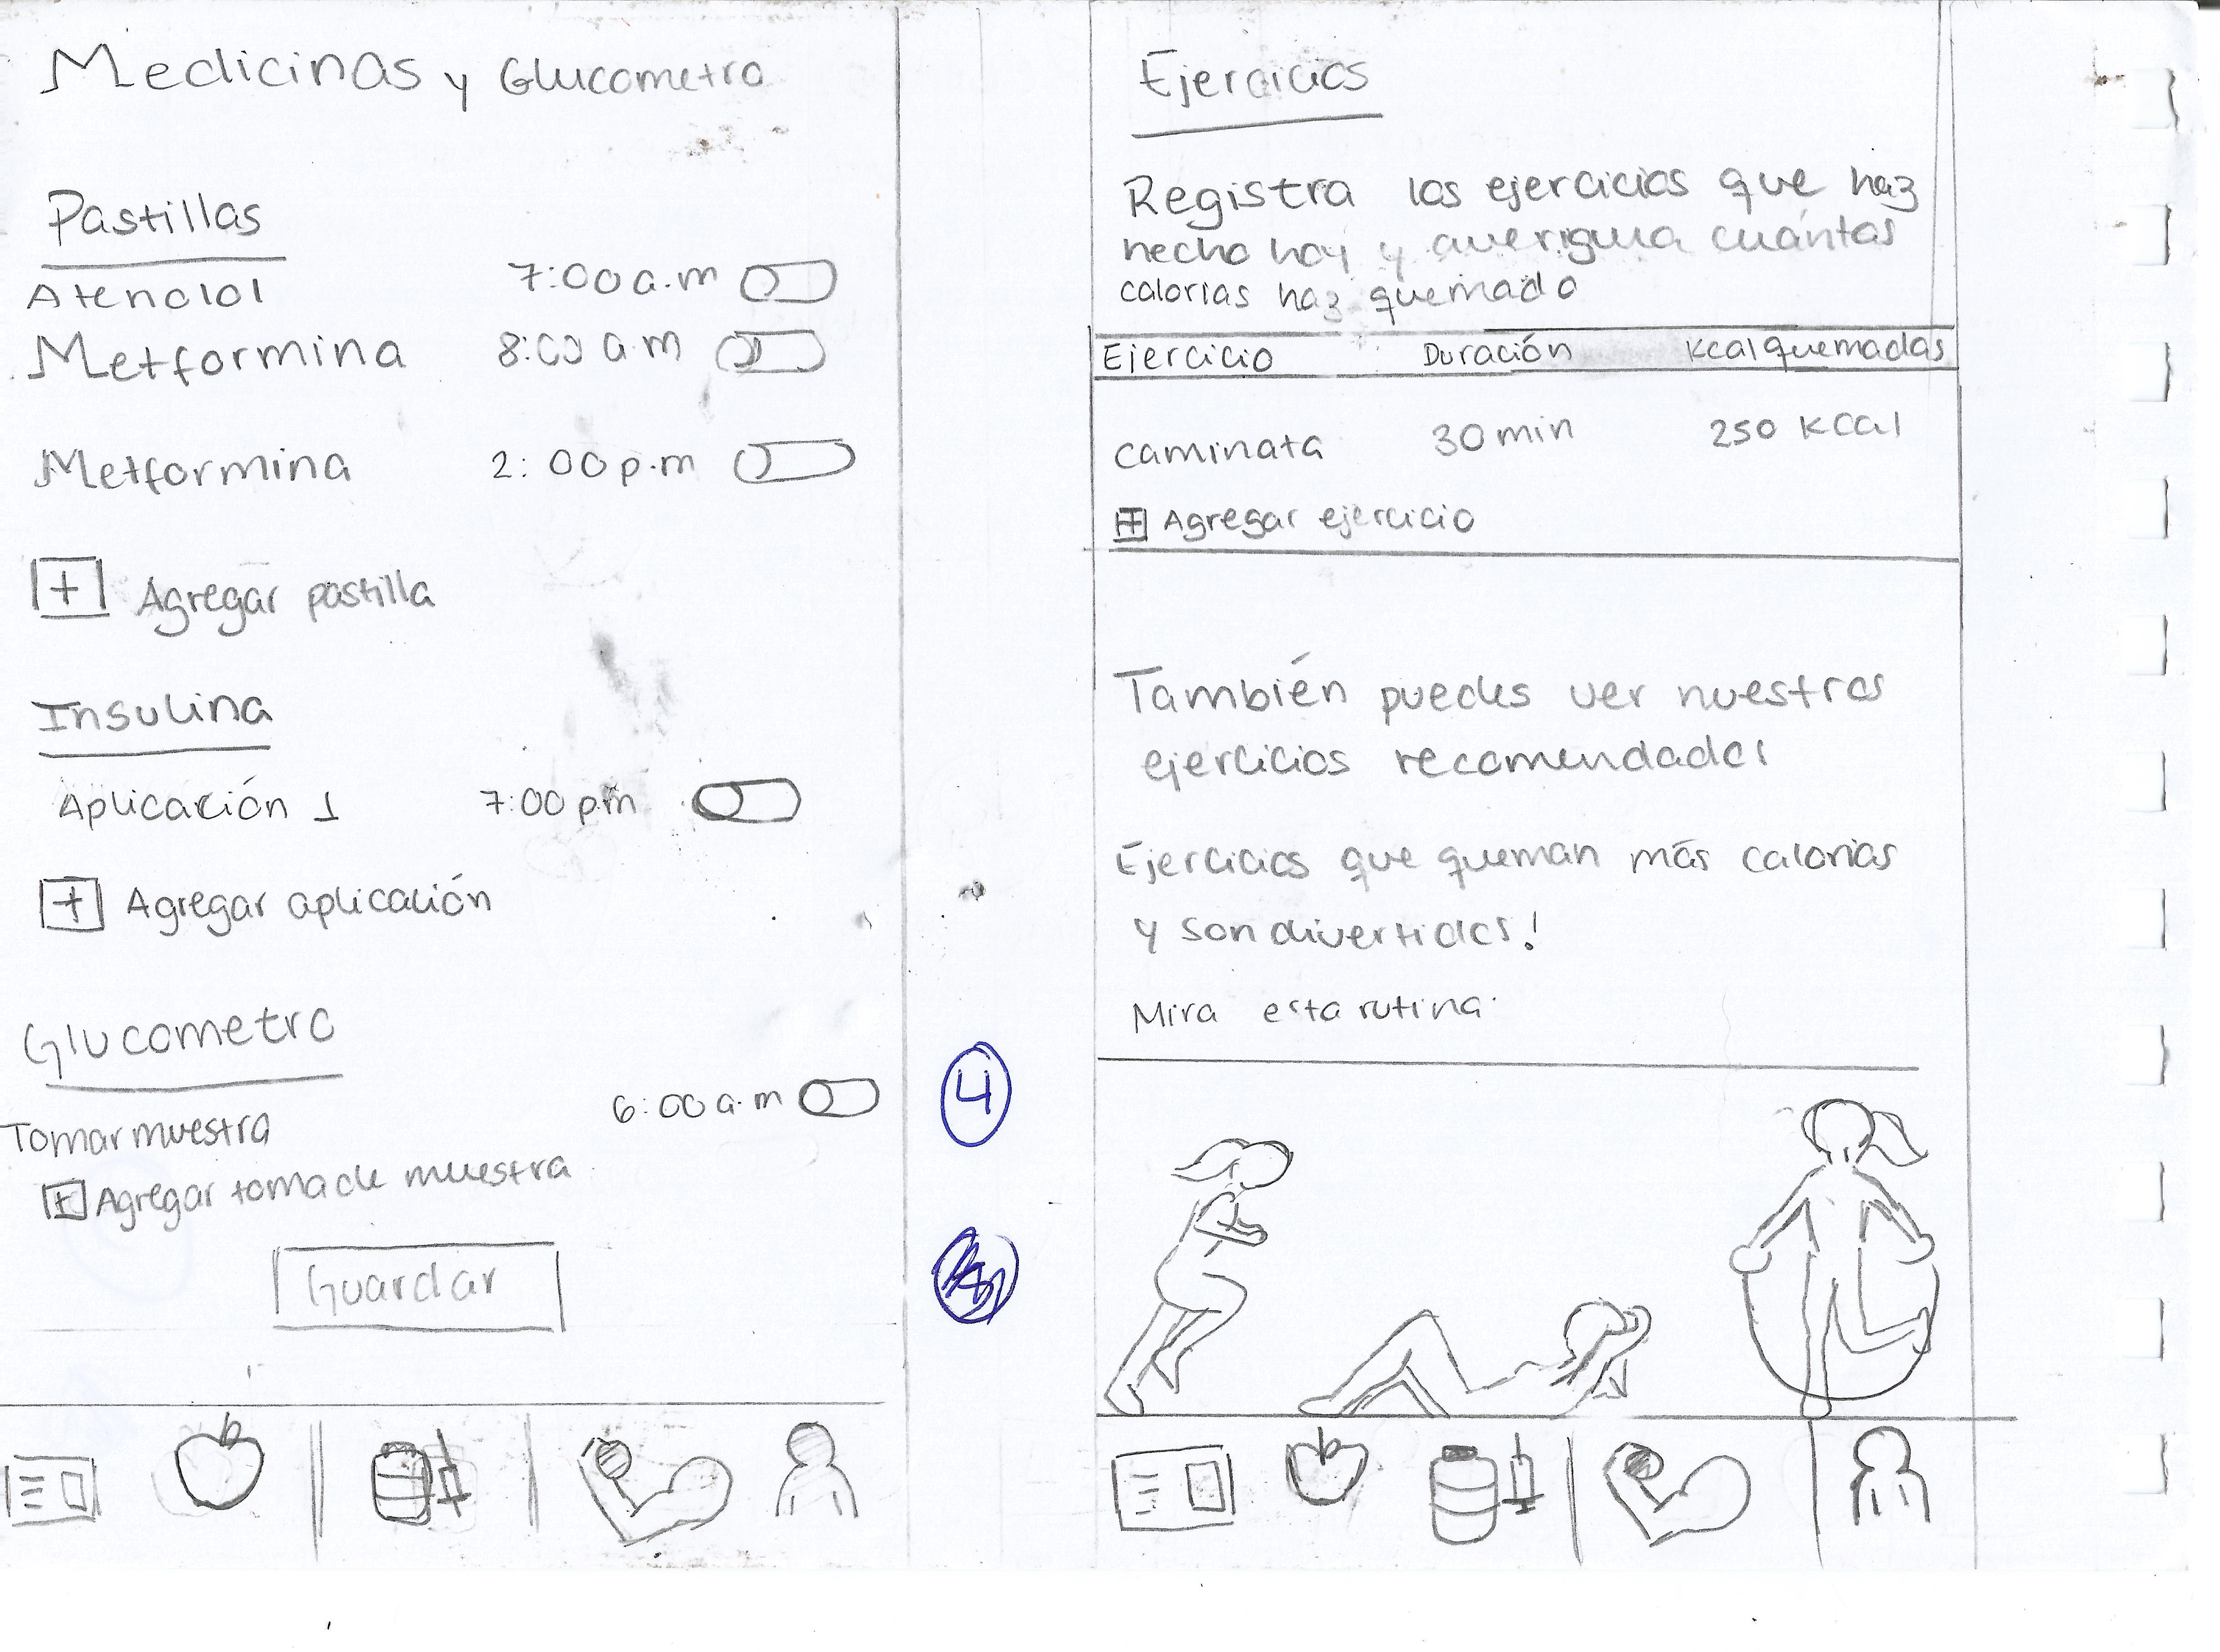 Medicinas y Glucometro
Pastillas
Atenolol 7:00 a.m
Metformina 8:00 a.m
Metformina 2:00 p.m
+ Agregar pastilla
Insulina
Aplicación 1 7:00 pm
+ Agregar aplicación
Glucometro
6:00 a.m
Tomar muestra
+ Agregar toma de muestra
Guardar
4
Ejercicios
Registra los ejercicios que haz
hecho hoy y averigua cuántas
calorias haz quemado
Ejercicio Duración Kcal quemadas
caminata 30 min 250 Kcal
+ Agregar ejercicio
También puedes ver nuestros
ejercicios recomendados
Ejercicios que queman más calorias
y son divertidos!
Mira esta rutina: